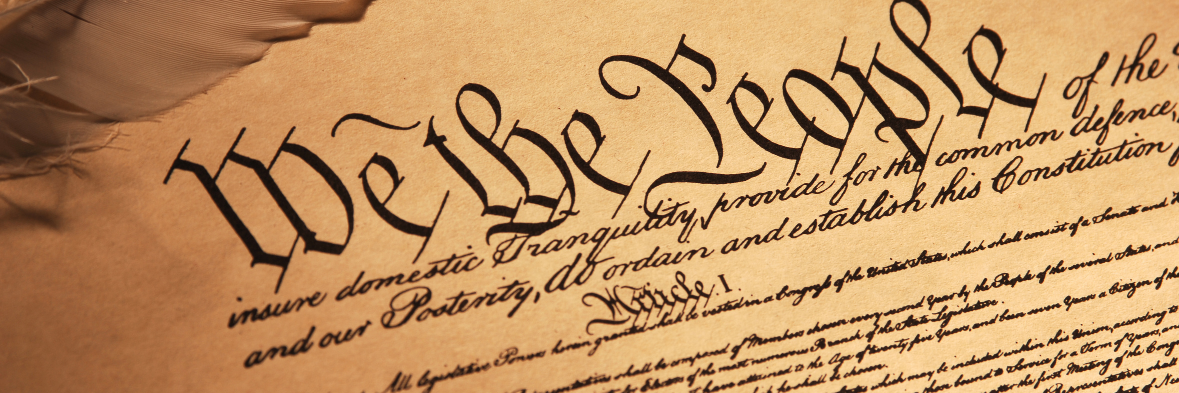 We the People of the
insure domestic Tranquility, provide for the common defence,
and our Posterity, do ordain and establish this Constitution
Article. I.
All legislative Powers herein granted shall be vested in a Congress of the United States, which shall consist of a Senate and
shall be composed of Members chosen every second Year by the People of the several States, and
Electors of the most numerous Branch of the State Legislature.
have attained to the Age of twenty five Years, and been seven Years a Citizen of the
he shall be chosen.
States which may be included within this Union, according to
those bound to Service for a Term of Years, and
after the first Meeting of the
Representatives shall